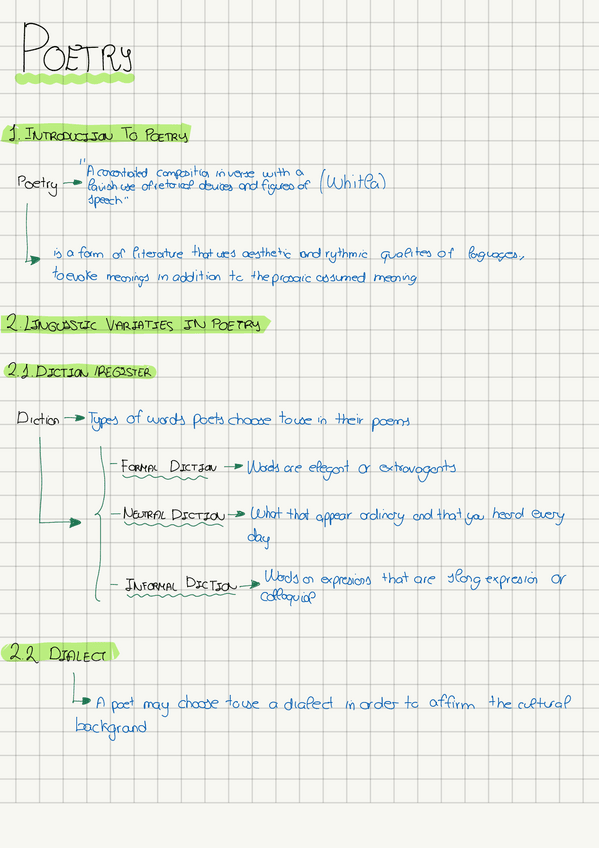 POETRY
1. INTRODUCTION TO POETRY
Poetry → "A concentrated composition in verse with a
lavish use of retorical devices and figures of
speech" (Whitla)
is a form of literature that uses aesthetic and rythmic qualites of languages,
to evoke meanings in addition to the prosaic assumed meaning
2. LINGUISTIC VARIATIES IN POETRY
2.1. DICTION/REGISTER
Diction → Types of words poets choose to use in their poems
- FORMAL DICTION → Words are elegant or extravagants
- NEUTRAL DICTION → What that appear ordinary and that you heard every
day
- INFORMAL DICTION → Words or expresions that are slang expresion or
colloquial
2.2 DIALECT
A poet may choose to use a dialect in order to affirm the cultural
background